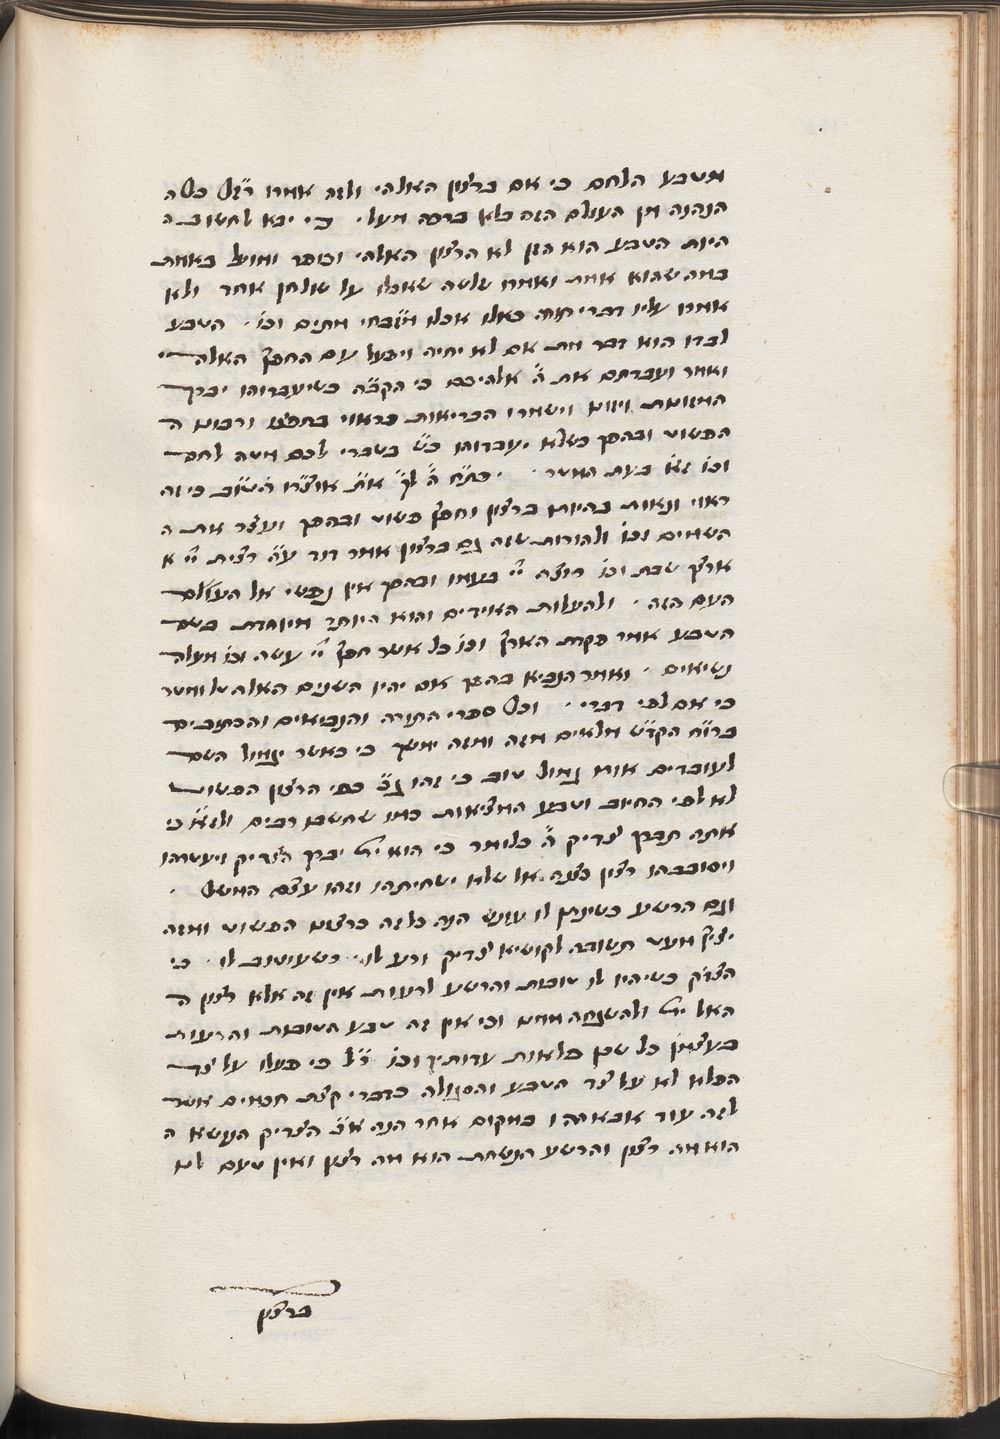 מטבע הלחם כי אם ברצון האלהי ולזה אמרו רז״ל כל ה
הנהנה מן העולם הזה בלא ברכה מעל כי יבא לחשוב ה
היות הטבע הוא הזן לא הרצון האלהי וכופר ומועל באמת
במה שהוא אמת ואמרו שלשה שאכלו על שולחן אחד ולא
אמרו עליו דברי תורה כאלו אכלו מזבחי מתים וכו׳ הטבע
לבדו הוא דבר מת אם לא יחיה ויפעל עם החפץ האלהי
ואמר ועבדתם את ה׳ אלהיכם כי הקב״ה כשיעבדוהו יברך
המזונות וישמרו הבריאות כראוי בחפצו ורצונו ה
הפשוט ובהפך כשלא יעבדוהו כש״כ בשברי לכם מטה לחם
וכו׳ בעת המטר יפתח ה׳ לך את אוצרו הטוב כי זה
ראוי ונאות בהיותו ברצון וחפץ פשוט ובהפך ועצר את ה
השמים וכו׳ ולהורות שזה גם ברצון אמר דוד ע״ה רצית יי׳ א
ארצך שבת וכו׳ רוצה יי׳ בעמו ובהפך אין נפשי אל העולם
העם הזה ולהעלות האידים והוא היותר מיוחדת בשם
הטבע אמר בקרת הארץ וכו׳ כל אשר חפץ יי׳ עשה וכו׳ מעלה
נשיאים ואמר הנביא בהפך אם יהיו השנים האלה טל ומטר
כי אם לפי דברי וכל ספרי התורה והנביאים והכתובים
ברוח הקדש מלאים מזה ומזה ימשך כי כאשר יגמול השם
לעובדים אותו גמול טוב כי זהו ג״כ כפי הרצון הפשוט
לא לפי החיוב וטבע המציאות כמו שחשבו רבים ולז״א כי
אתה תברך צדיק ה׳ כלומר כי הוא ית׳ יברך הצדיק ויעטרהו
ויסובבהו רצון כצנה או שלא ישחיתהו וזהו עצם המשל
וגם הרשע כשינתן לו עונש הנה כל זה ברצונו הפשוט ומזה
יציץ מעט תשובה לקושיא צדיק ורע לו רשע וטוב לו כי
הצדיק כשיהיו לו טובות והרשע לרעות אין זה אלא רצון ה
האל ית׳ ולהשגחה ממנו וכי אין זה טבע הטובות והרעות
בעצמן כל שכן פלאות עדותיך וכו׳ ר״ל כי פעלו על צד
הפלא לא על צד הטבע והסגולה כדברי קצת חכמים אשר
לזה עוד אבארהו במקום אחר הנה א״כ הצדיק הנושא ה
הוא מה רצון והרשע הנשחת הוא מה רצון ואין טעם לא
ברצון